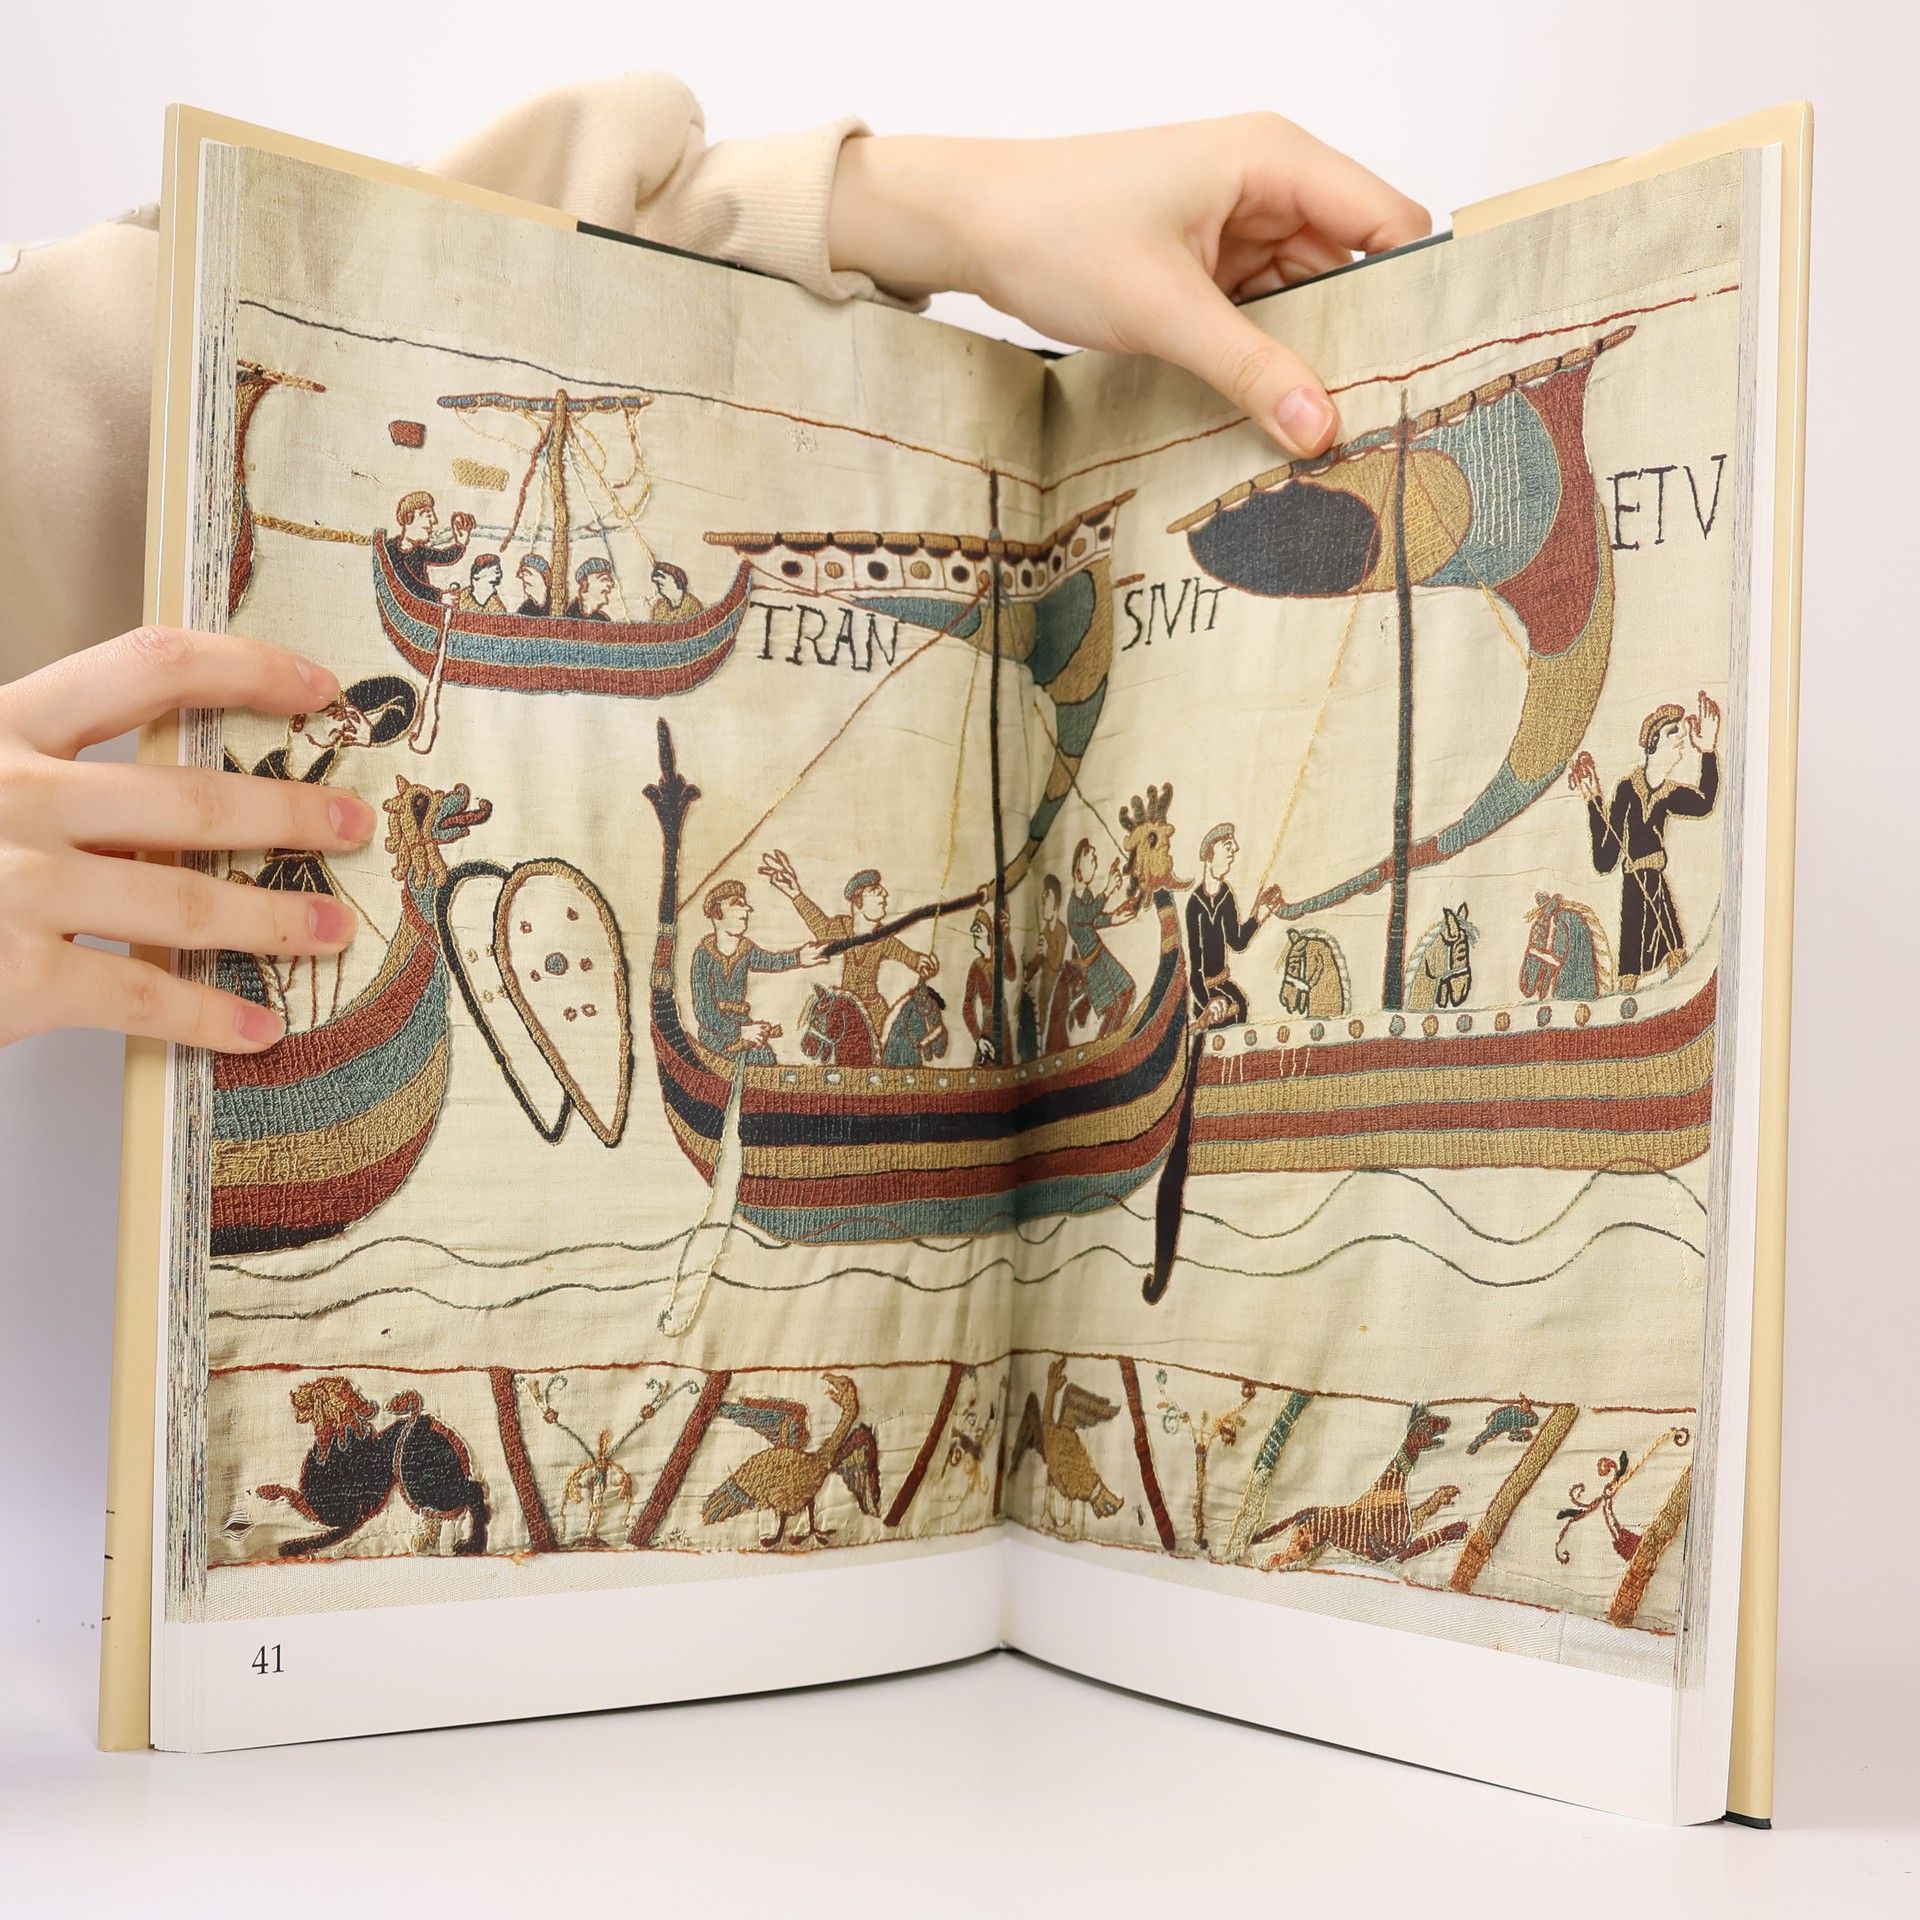 TRAN SIVIT ET V
41